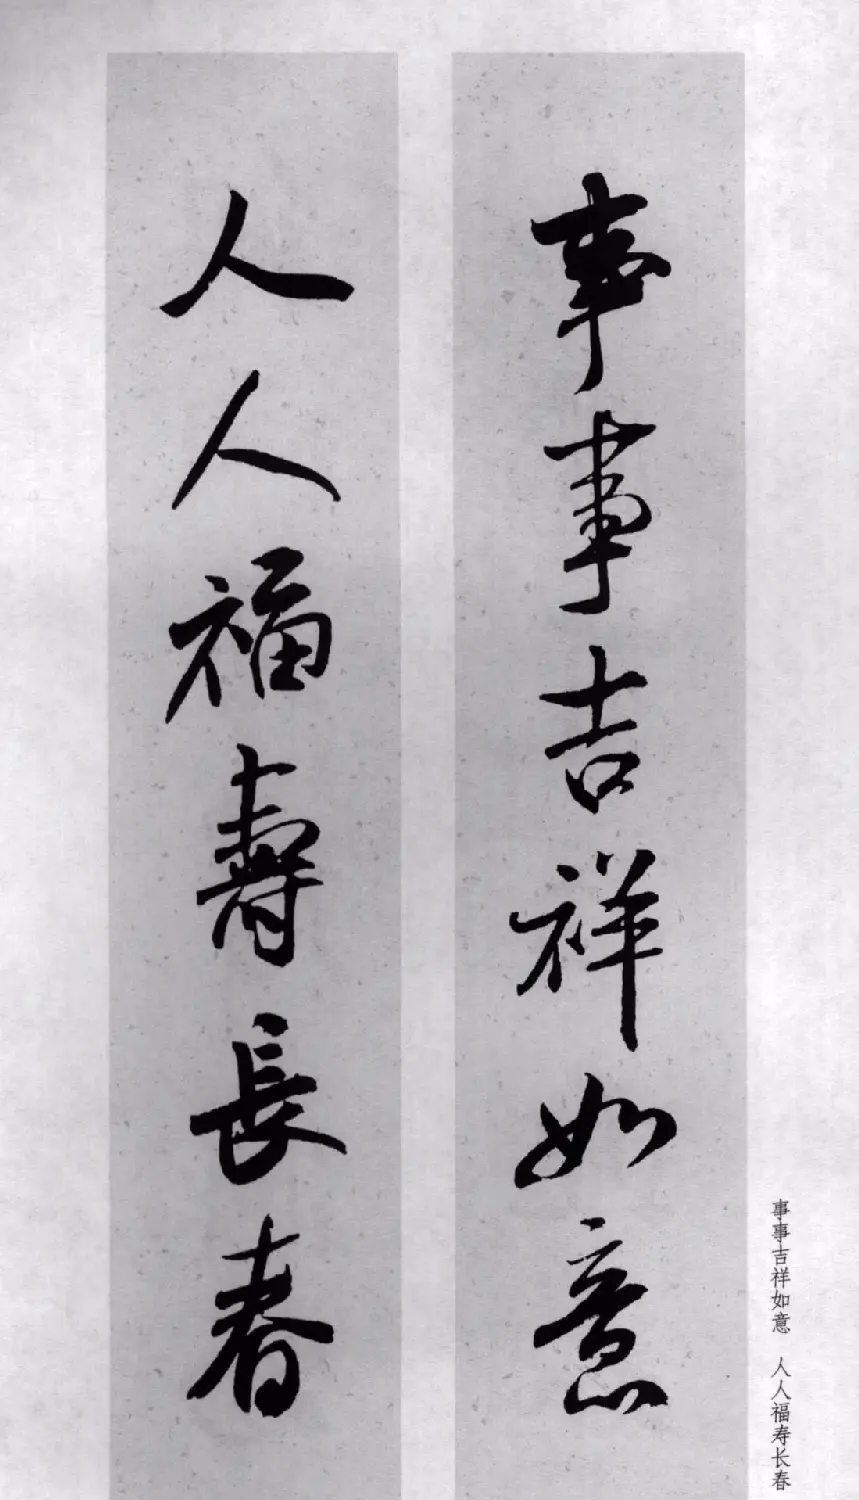 事事吉祥如意
人人福壽長春
事事吉祥如意 人人福寿长春